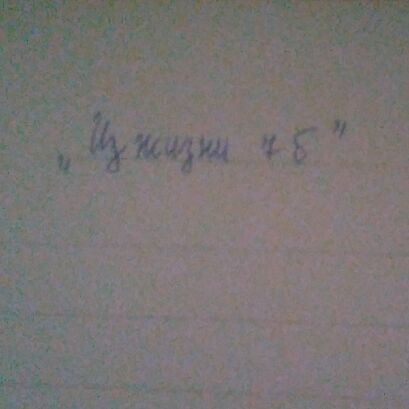 „Из жизни 7 Б"